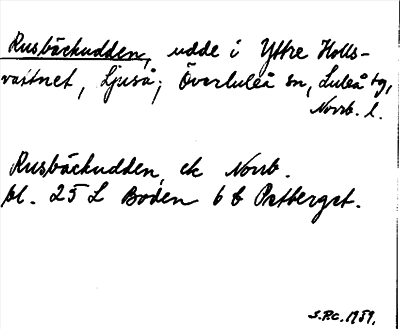 Rusbäckudden, udde i Yttre Holls-
vattnet, Ljuså, Överluleå sn, Luleå tg,
Norrb. l.
Rusbäckudden, ek Norrb.
bl. 25 L Boden 6 b Pastberget.
S.P.C. 1959.